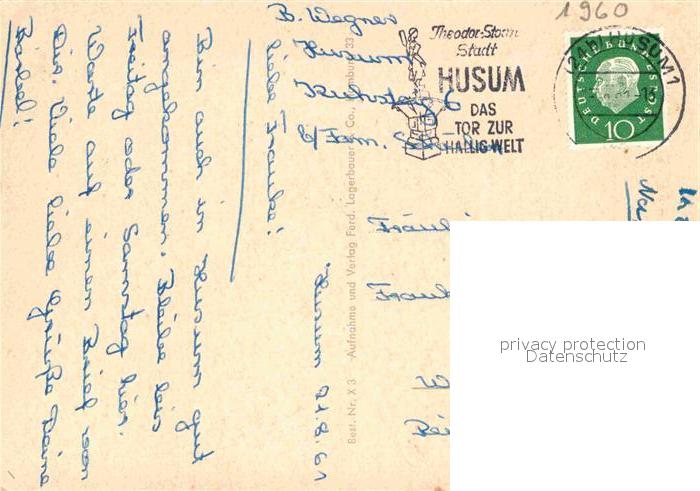 1960
B. Wegner
Husum
Kuhsteig 6
b/Fam.
Theodor-Storm-
Stadt
HUSUM
DAS
TOR ZUR
HALLIG-WELT
(24b) HUSUM 1
DEUTSCHE BUNDESPOST
10
Husum 21.8.61
Liebe Traute!
Bin auch in Husum gut
angekommen. Bleibe bis
Freitag oder Samstag hier.
Warte auf einen Brief von
Dir. Viele liebe Grüße Deine
Bärbel!
Best. Nr. X 3 Aufnahme und Verlag Ferd. Lagerbauer & Co., Hamburg 33
privacy protection
Datenschutz